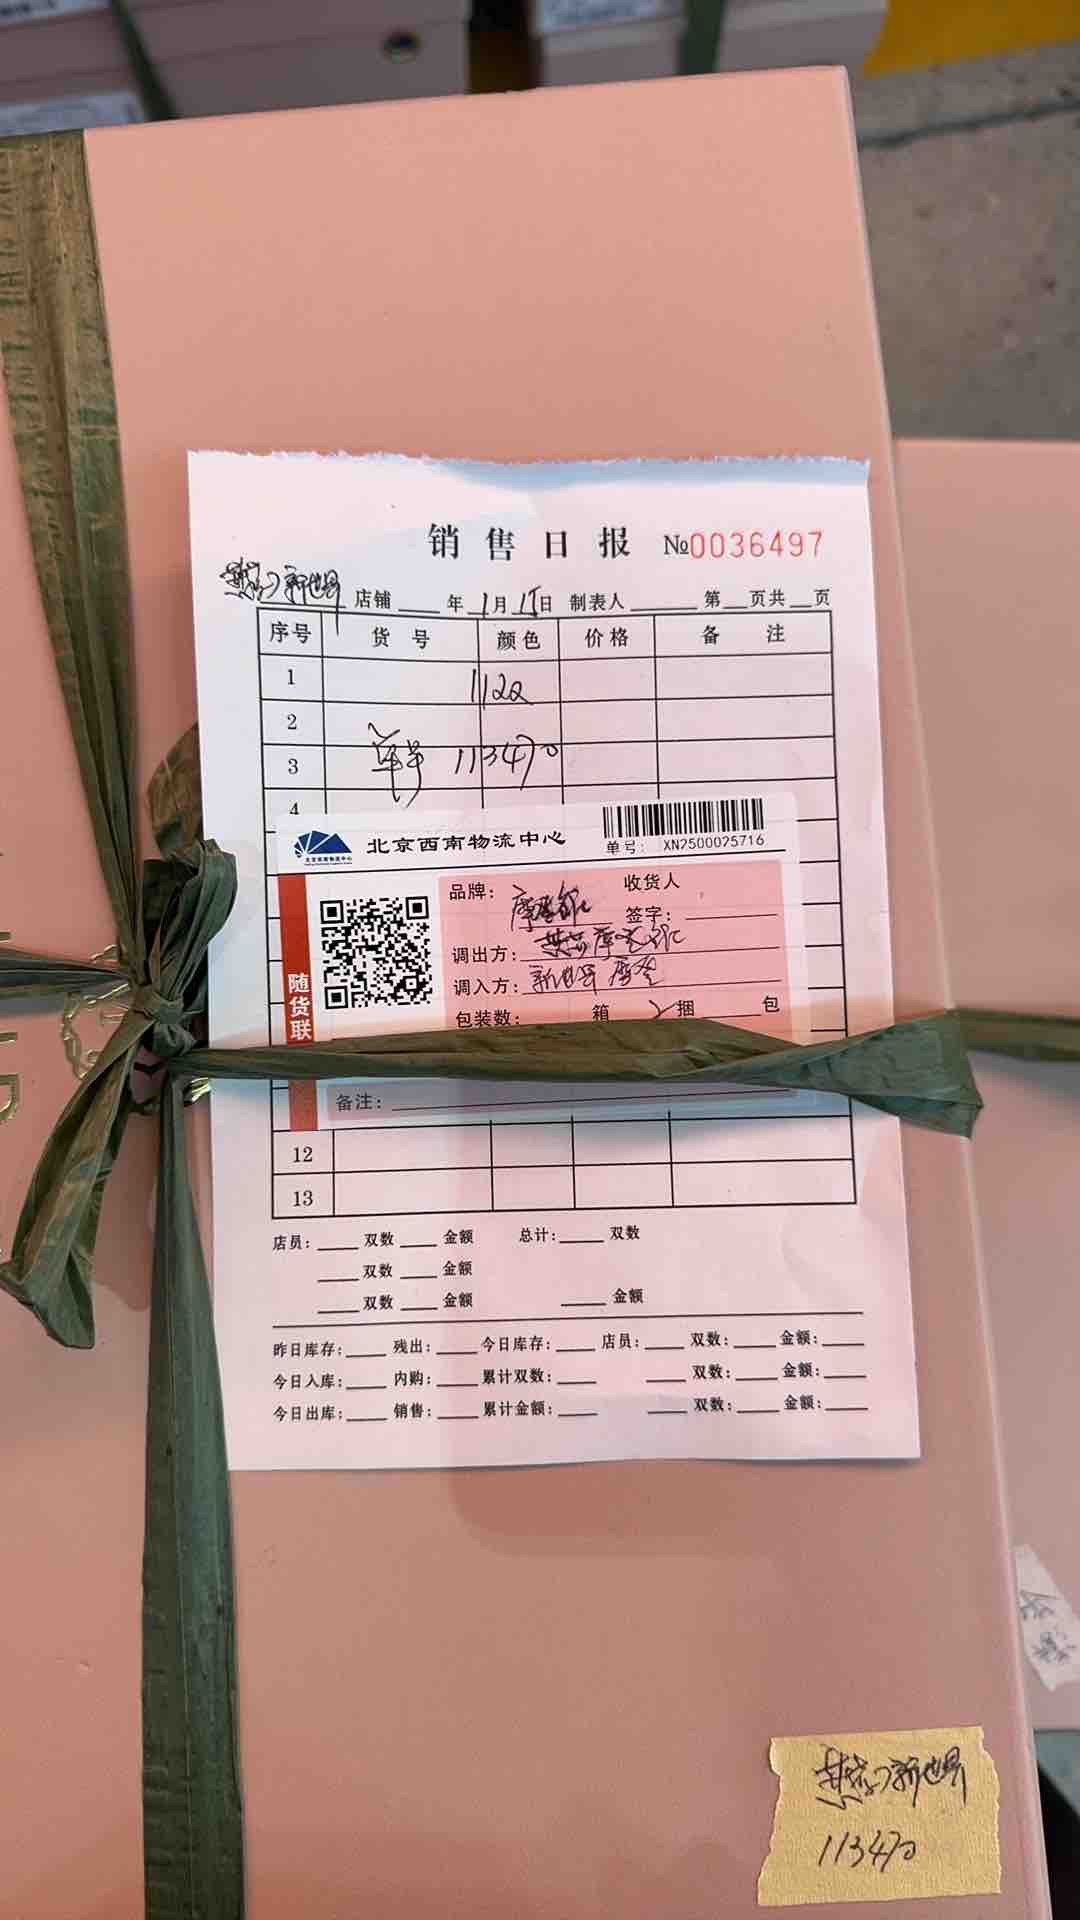 销售日报 №0036497
新世界 店铺 年 1月15日 制表人 第 页共 页
序号 货号 颜色 价格 备注
1 1122
2
3 单号 113470
4
北京西南物流中心
单号: XN2500025716
品牌:
收货人
签字:
调出方:
调入方: 新世界
包装数: 箱 2捆 包
随货联
备注:
12
13
店员: 双数 金额 总计: 双数
双数 金额
双数 金额 金额
昨日库存: 残出: 今日库存: 店员: 双数: 金额:
今日入库: 内购: 累计双数: 双数: 金额:
今日出库: 销售: 累计金额: 双数: 金额:
新世界
113470